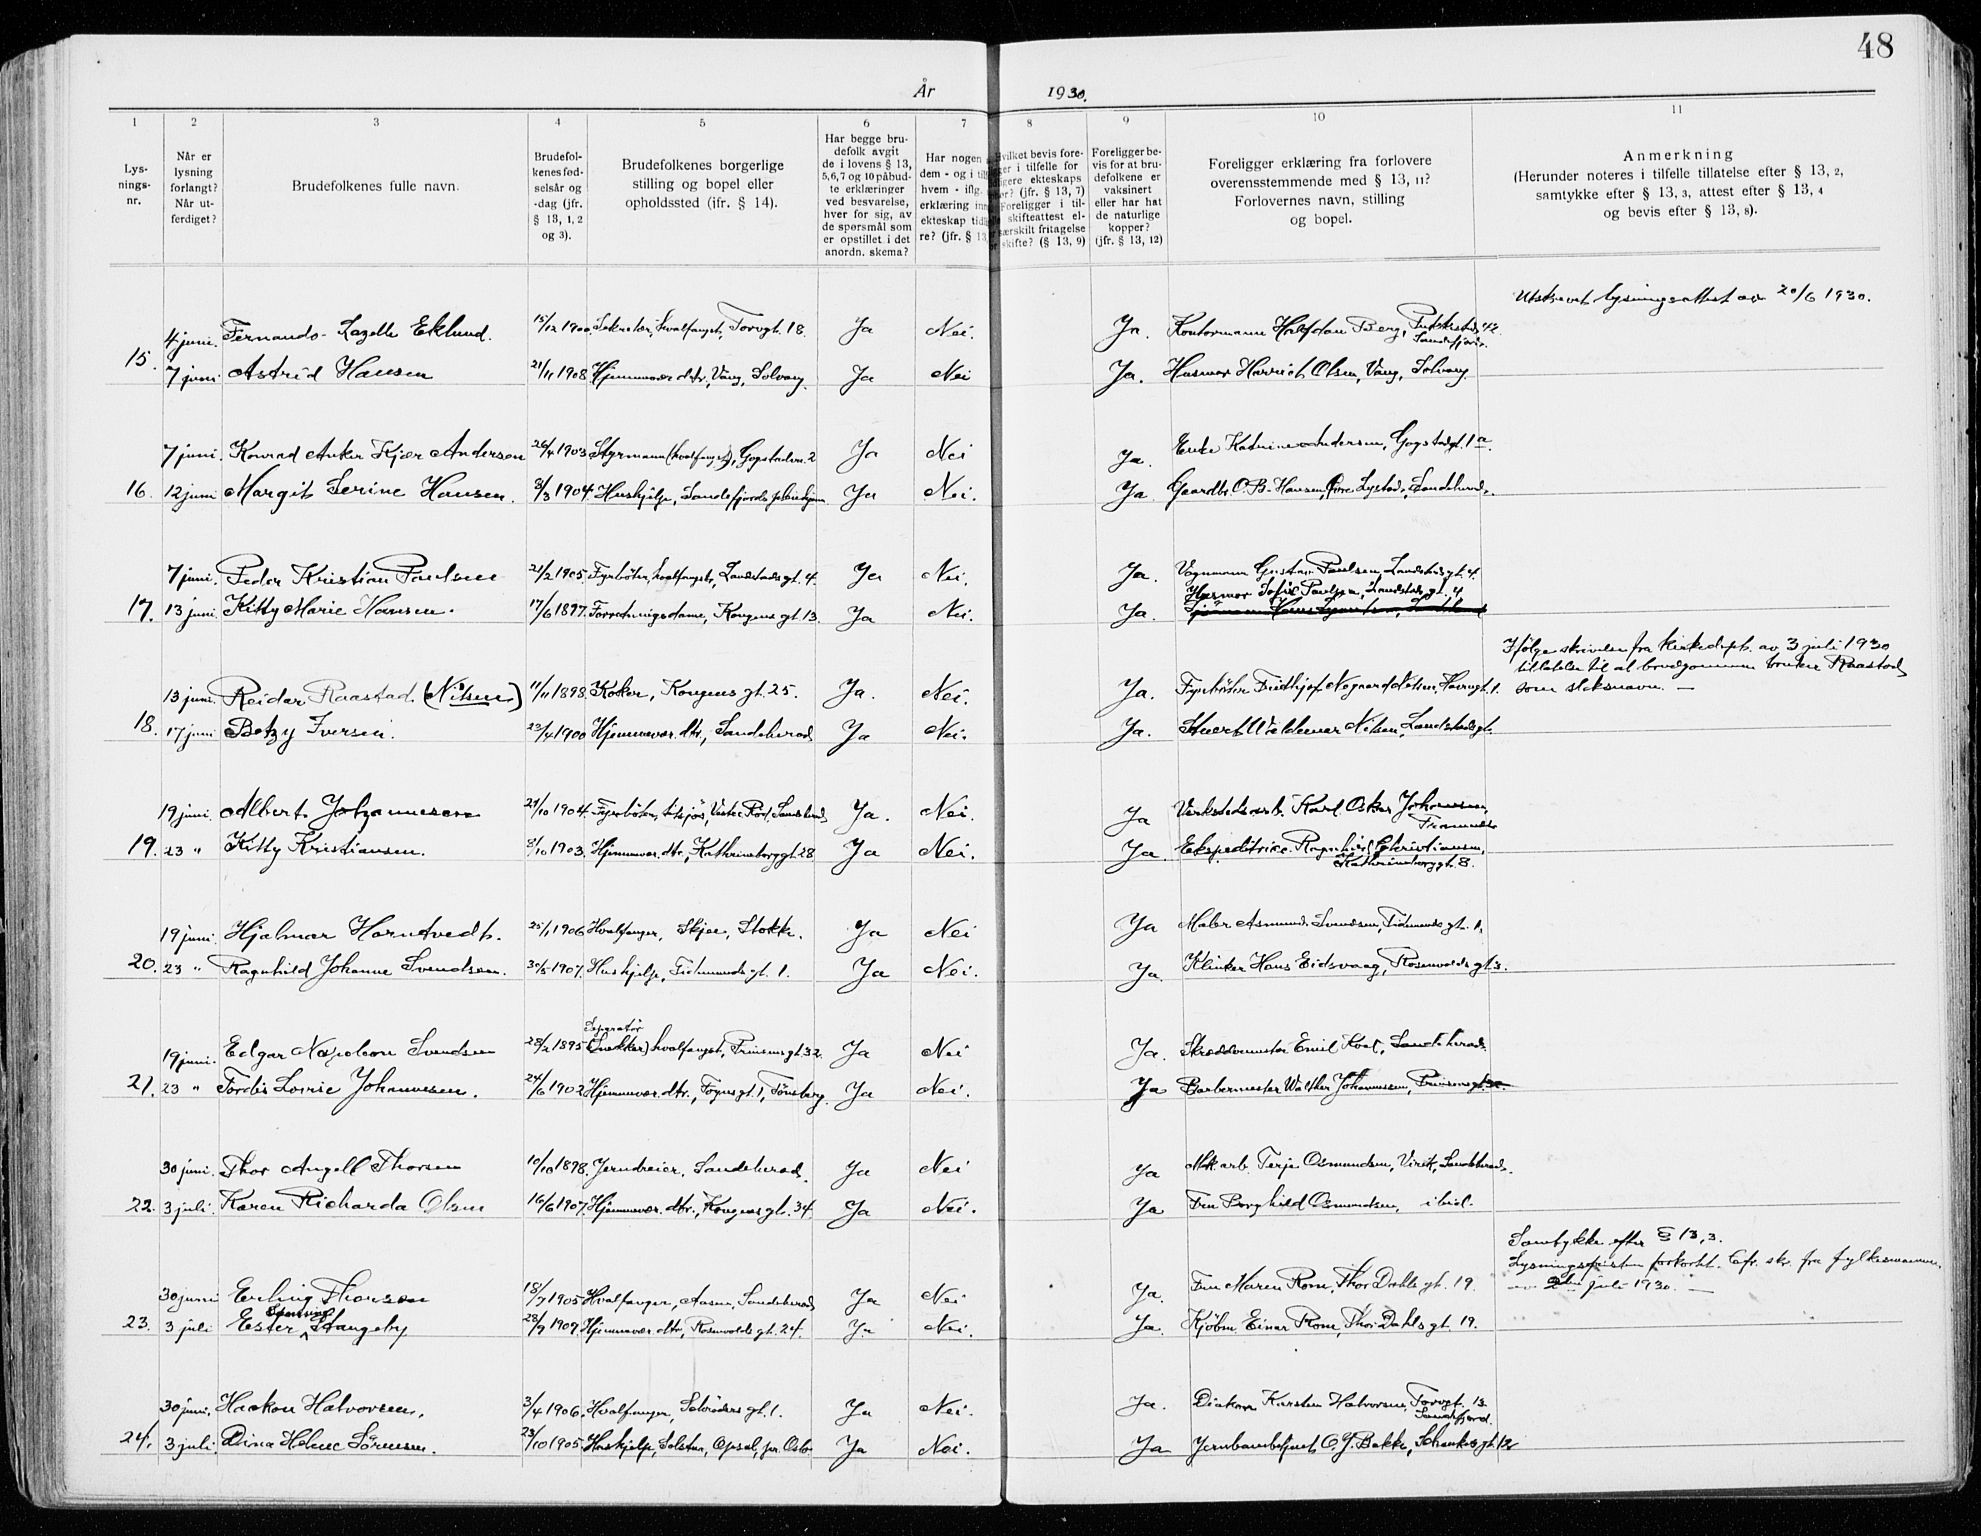 48
År 1930.
1 2 3 4 5 6 7 8 9 10 11
Lys-
nings-
nr.
Når er
lysning
forlangt?
Når ut-
ferdiget?
Brudefolkenes fulle navn.
Brudefol-
kenes fød-
selsår og
-dag (jfr.
§ 13, 1, 2
og 3).
Brudefolkenes borgerlige
stilling og bopel eller
opholdssted (jfr. § 14).
Har begge bru-
defolk avgit
de i lovens § 13,
5, 6, 7 og 10 påbud-
te erklæringer
ved besvarelse,
hver for sig, av
de spørsmål som
er opstillet i det
anordn. skema?
Har nogen
dem - og i til
hvem - iflg.
erklæring inn
ekteskap tid
re? (jfr. § 13,
vilket bevis fore-
ger i tilfelle for
ligere ekteskaps
ør? (jfr. § 13, 7)
Foreligger i til-
skifteattest el-
særskilt fritagelse
skifte? (§ 13, 9)
Foreligger be-
vis for at bru-
defolkene er
vaksinert
eller har hat
de naturlige
kopper?
(jfr. § 13, 12)
Foreligger erklæring fra forlovere
overensstemmende med § 13, 11?
Forlovernes navn, stilling
og bopel.
Anmerkning
(Herunder noteres i tilfelle tillatelse efter § 13, 2,
samtykke efter § 13, 3, attest efter § 13, 4
og bevis efter § 13, 8).
Utskrevet lysningsattest av 20/6 1930.
4 juni. Fernando Lazelle Eklund. 15/12 1900. Sekretær, hvalfangst, Torvgt. 18. Ja Nei. Ja. Kontormann Halfdan Berg, Sandefjord.
15. 7 juni Astrid Hansen 21/11 1908 Hjemmevær. dtr, Vang, Solvang. Ja Nei Ja. Husmor Harriet Olsen, Vang, Solvang.
7 juni. Konrad Anker Kjær Andersen 26/4 1903 Styrmann (hvalfangst), Gogstadvn. 2 Ja Nei Ja. Enke Katrine Andersen, Gogstadgt. 1 a.
16. 12 juni Margit Serine Hansen. 3/3 1904. Hushjelp, Sandefjords pleiehjem Ja Nei. Ja Gaardbr. O. B. Hansen, Lystad, Sandeherad.
7 juni. Peder Kristian Paulsen 21/2 1905. Fyrbøter, hvalfangst, Landstadsgt. 4. Ja Nei. Ja. Vognmann Gustav Paulsen, Landstadsgt. 4.
17. 13 juni. Kitty Marie Hansen. 17/6 1897. Forretningsdame, Kongens gt. 13. Ja Nei. Ja. Husmor Sofie Paulsen, Landstadsgt. 4
Ifølge skrivelse fra Kirkedept. av 3 juli 1930
tillatelse til at brudgommen bruker Raastad
som slektsnavn. —
13 juni. Reidar Raastad (Nilsen) 11/11 1898. Koker, Kongens gt. 25. Ja. Nei. Ja. Fyrbøter Fridtjof Negaard Nilsen, Havnegt. 1.
18. 17 juni Betzy Iversen. 23/4 1900 Hjemmevær. dtr., Sandeherad Ja Nei. Ja. Stuert Valdemar Nilsen, Landstadsgt.
19 juni. Albert Johannesen 29/10 1904. Fyrbøter, tilsjøs, Vestre Rød, Sandeherad Ja. Nei. Ja Verkstedsarb. Karl Oskar Johansen, Framnes
19. 23 " Kitty Kristiansen. 8/10 1903. Hjemmevær. dtr., Kathrineborggt. 28 Ja Nei. Ja. Ekspeditrice Ragnhild Christiansen, Kathrineborggt. 8.
19 juni. Hjalmar Hørntvedt. 25/1 1906 Hvalfanger, Skjee, Stokke. Ja Nei Ja Maler Asmund Svendsen, Tidemands gt. 1.
20. 23 " Ragnhild Johanne Svendsen. 30/5 1907. Hushjelp, Tidemands gt. 1. Ja Nei. Ja. Klinker Hans Eidsvaag, Rosenvolds gt 3.
Separatør
19 juni. Edgar Napoleon Svendsen 28/2 1895 (Snekker) hvalfangst, Prinsens gt. 32. Ja Nei Ja. Skreddermester Emil Roal, Sandeherad.
21. 23 " Tordis Lovise Johannesen. 24/6 1902 Hjemmevær. dtr., Føyns gt. 1, Tønsberg. Ja Nei. Ja Barbermester Walther Johannessen, Prinsensgt.
30 juni. Thor Angell Thorsen 10/10 1898. Jerndreier, Sandeherad. Ja Nei Ja Mek. arb. Terje Osmundsen, Virik, Sandeherad.
22. 3 juli. Karen Richarda Olsen 16/6 1907. Hjemmevær. dtr., Kongens gt. 34. Ja Nei. Ja Fru Borghild Osmundsen, ibid.
Samtykke efter § 13, 3.
Lysningsfristen forkortet. Cfr. skr. fra fylkesmannen
av 2den juli 1930. —
30 juni Erling Thorsen 18/7 1905 Hvalfanger, Aasen, Sandeherad Ja Nei Ja. Fru Maren Rom, Thor Dahls gt. 19.
23. 3 juli Ester Stangeby 28/9 1909. Hjemmevær. dtr., Rosenvolds gt. 24. Ja Nei. Ja. Kjøbm. Einar Rom, Thor Dahls gt. 19.
30 juni. Haakon Halvorsen. 3/4 1906. Hvalfanger, Schrøders gt. 1. Ja Nei. Ja. Diakon Karsten Halvorsen, Torvgt. 13 Sandefjord.
24. 3 juli. Dina Helene Sørensen. 23/10 1905. Hushjelp, Solstua, Opsal, pr. Oslo Ja Nei. Ja Jernbanebetjent O. J. Bakke, Schankesgt. 12